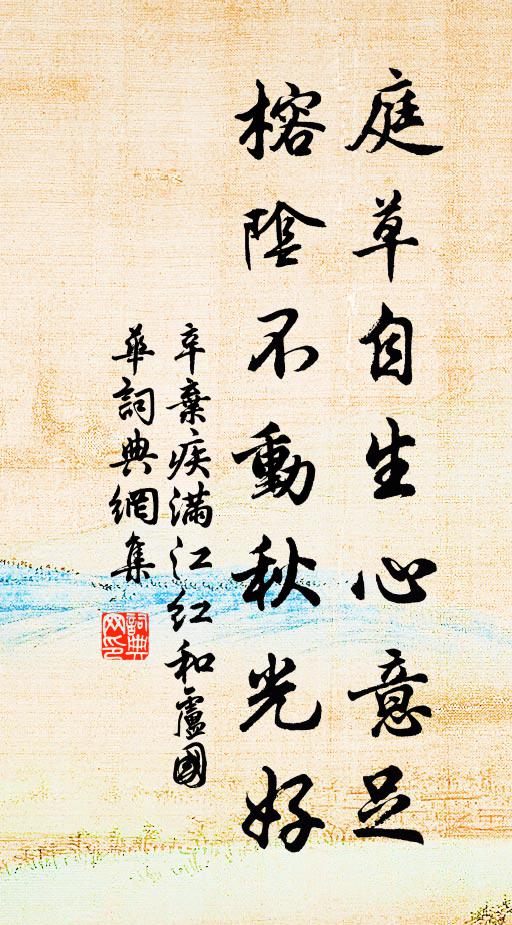 庭草自生心意足
榕陰不動秋光好
辛棄疾滿江红和盧國
華詞典網集
詞典
网印